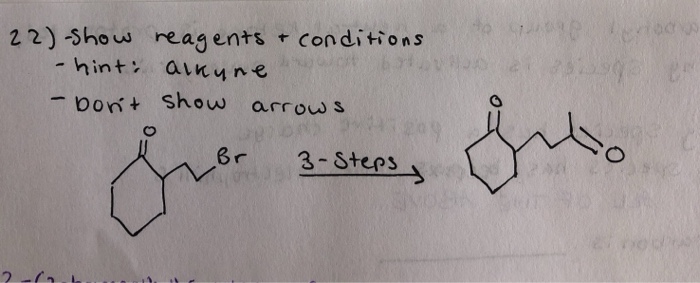 22) -Show reagents + conditions
- hint: alkyne
- Don't show arrows
O
Br
3-Steps
O
O